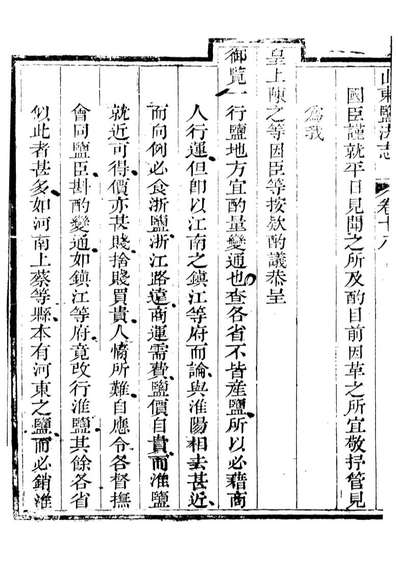 山東鹽法志
卷十八
國臣謹就平日見聞之所及酌目前因革之所宜敬抒管見
為我
皇上陳之等因臣等按欵酌議恭呈
御覽一行鹽地方宜酌量變通也查各省不皆産鹽所以必藉商
人行運但卽以江南之鎮江等府而論與淮陽相去甚近
而向例必食浙鹽浙江路遠商運需費鹽價自貴而淮鹽
就近可得價亦甚賤捨賤買貴人情所難自應令各督撫
會同鹽臣斟酌變通如鎮江等府竟改行淮鹽其餘各省
似此者甚多如河南上蔡等縣本有河東之鹽而必銷淮